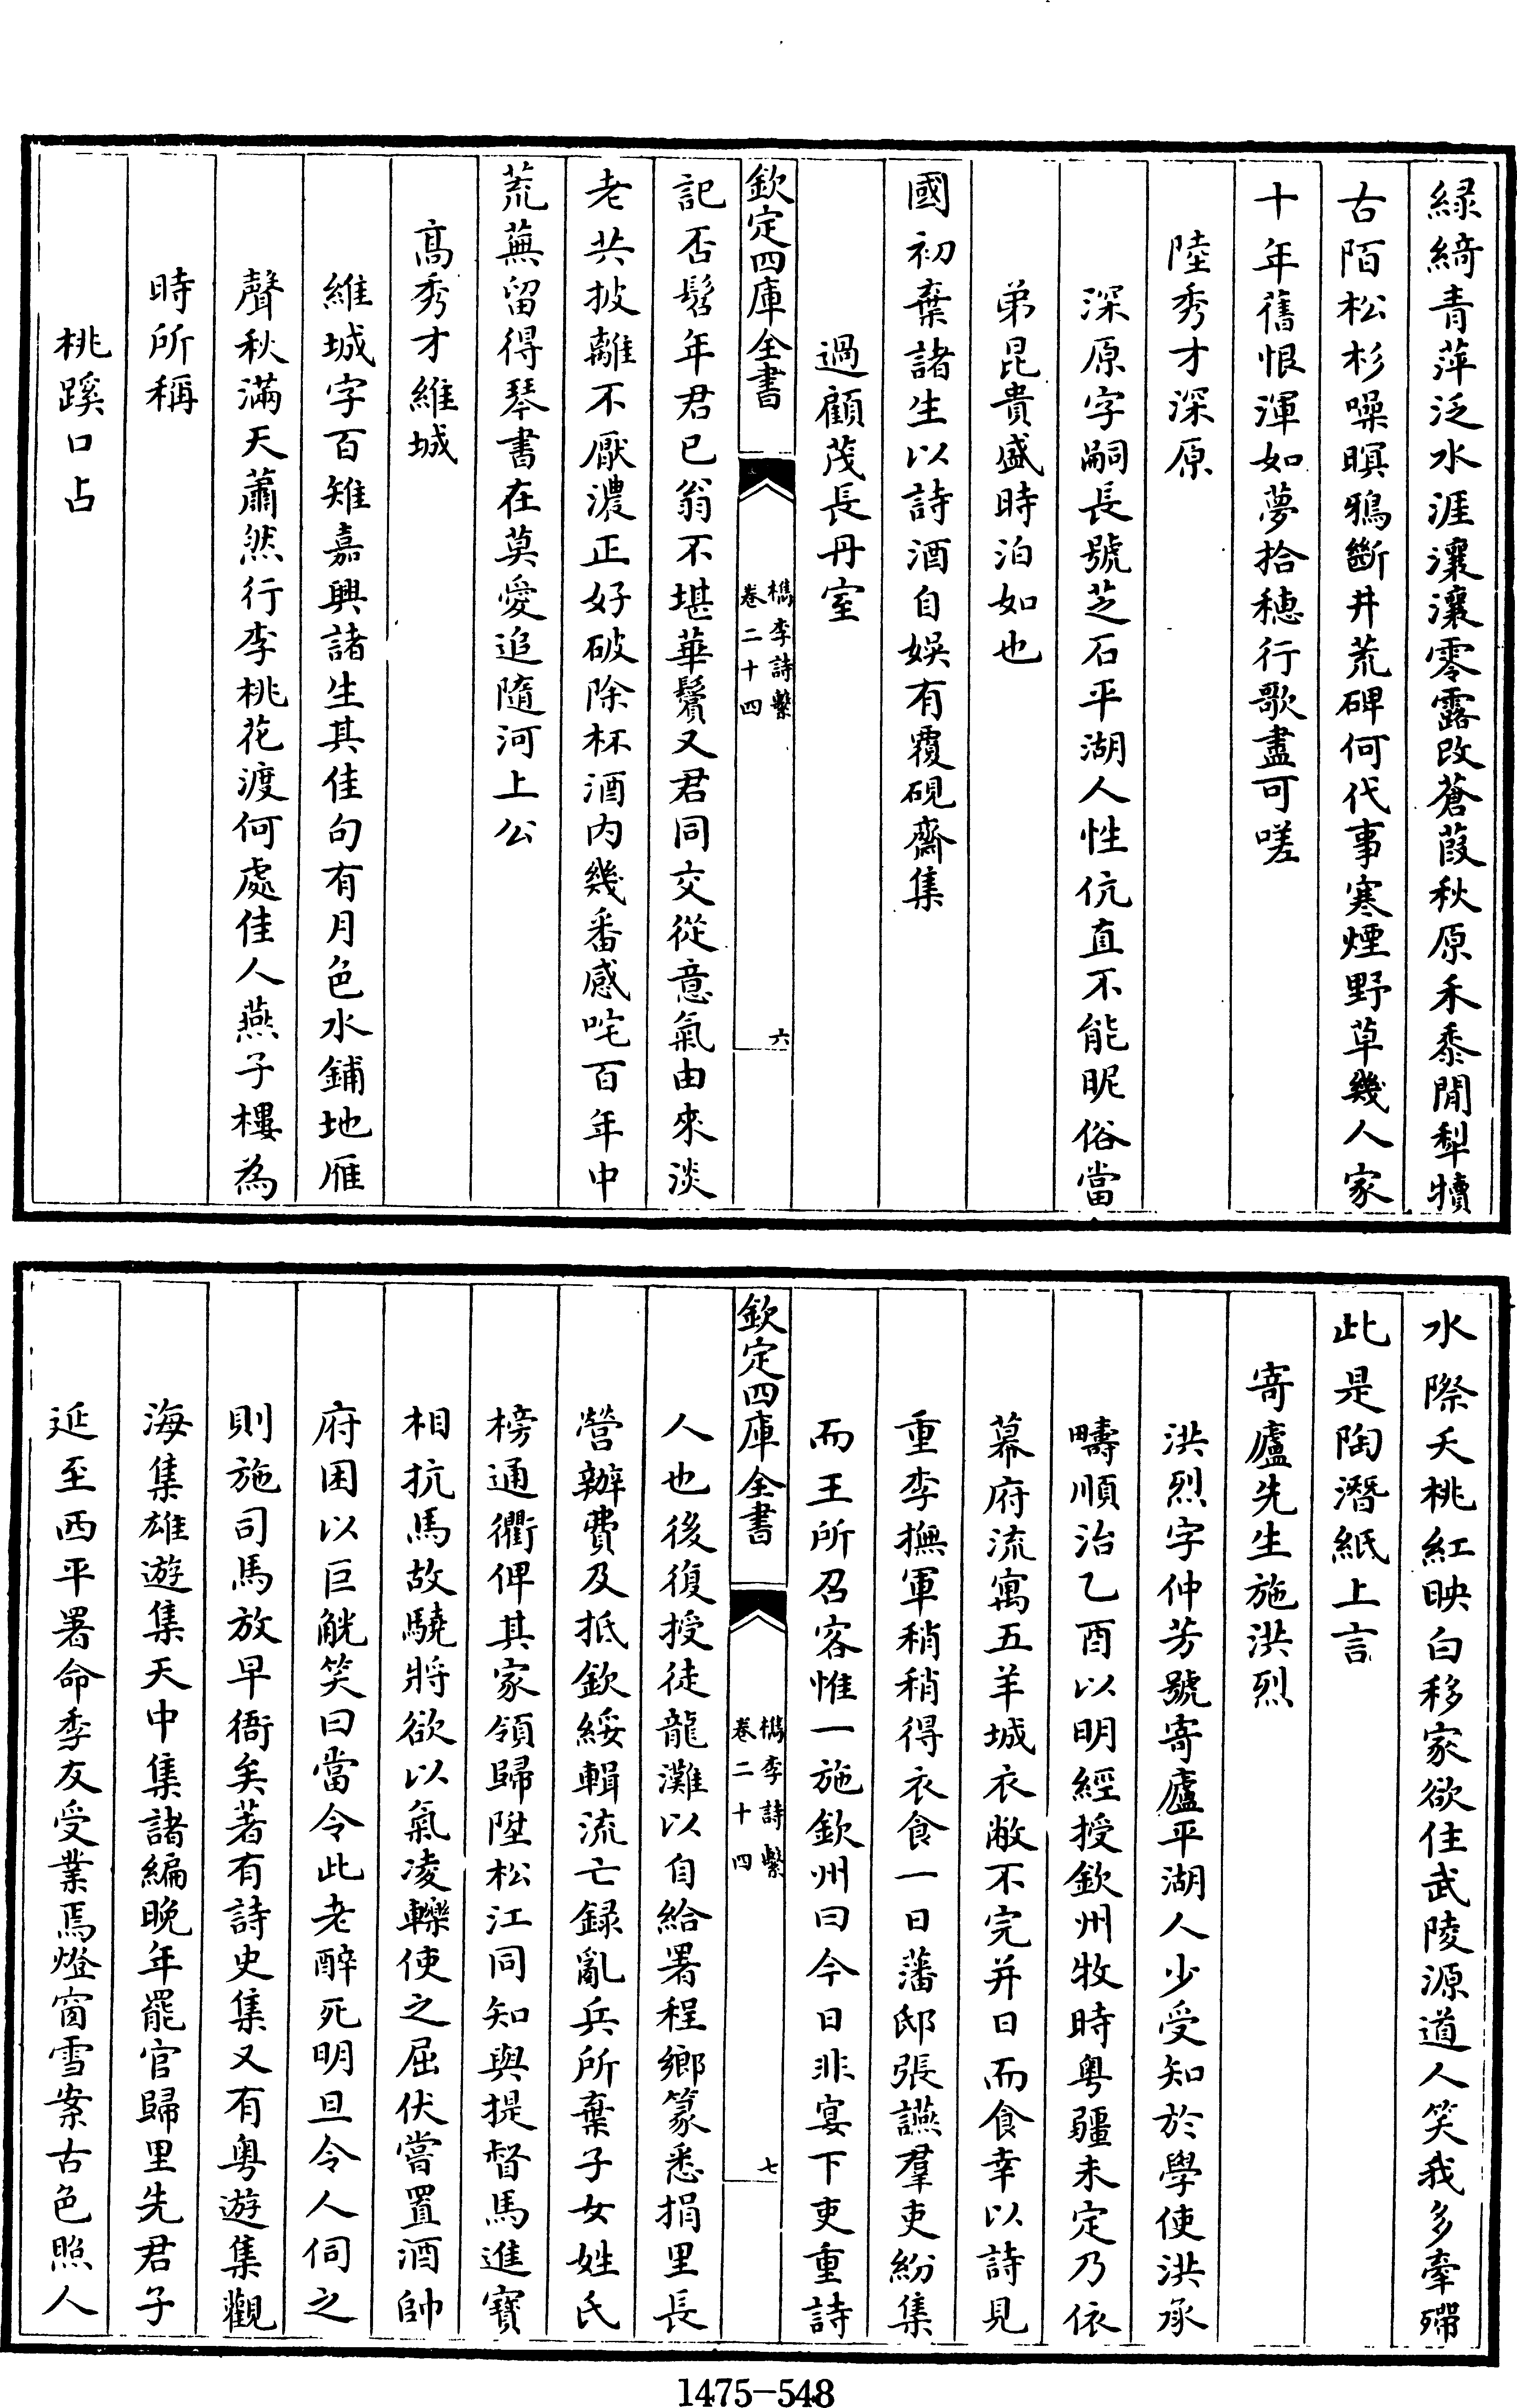 緑綺青萍泛水涯瀼瀼零露改蒼葭秋原禾黍閒犁犢
古陌松杉噪暝鴉斷井荒碑何代事寒煙野草幾人家
十年舊恨渾如夢拾穂行歌盡可嗟
陸秀才深原
深原字嗣長號芝石平湖人性伉直不能昵俗當
弟昆貴盛時泊如也
國初棄諸生以詩酒自娛有覆硯齋集
過顧茂長丹室
欽定四庫全書
檇李詩繫
卷二十四
六
記否髫年君已翁不堪華鬢又君同交從意氣由來淡
老共披離不厭濃正好破除杯酒内幾番感咤百年中
荒蕪留得琴書在莫愛追隨河上公
高秀才維城
維城字百雉嘉興諸生其佳句有月色水鋪地雁
聲秋滿天蕭然行李桃花渡何處佳人燕子樓為
時所稱
桃蹊口占
水際夭桃紅映白移家欲住武陵源道人笑我多牽殢
此是陶潛紙上言
寄廬先生施洪烈
洪烈字仲芳號寄廬平湖人少受知於學使洪承
疇順治乙酉以明經授欽州牧時粤疆未定乃依
幕府流寓五羊城衣敝不完并日而食幸以詩見
重李撫軍稍稍得衣食一日藩邸張讌羣吏紛集
而王所召客惟一施欽州曰今日非宴下吏重詩
欽定四庫全書
檇李詩繫
卷二十四
七
人也後復授徒龍灘以自給署程鄉篆悉捐里長
營辦費及抵欽綏輯流亡録亂兵所棄子女姓氏
榜通衢俾其家領歸陞松江同知與提督馬進寶
相抗馬故驍將欲以氣凌轢使之屈伏嘗置酒帥
府困以巨觥笑曰當令此老醉死明旦令人伺之
則施司馬放早衙矣著有詩史集又有粤遊集觀
海集雄遊集天中集諸編晚年罷官歸里先君子
延至西平署命季友受業焉燈窗雪案古色照人
1475-548